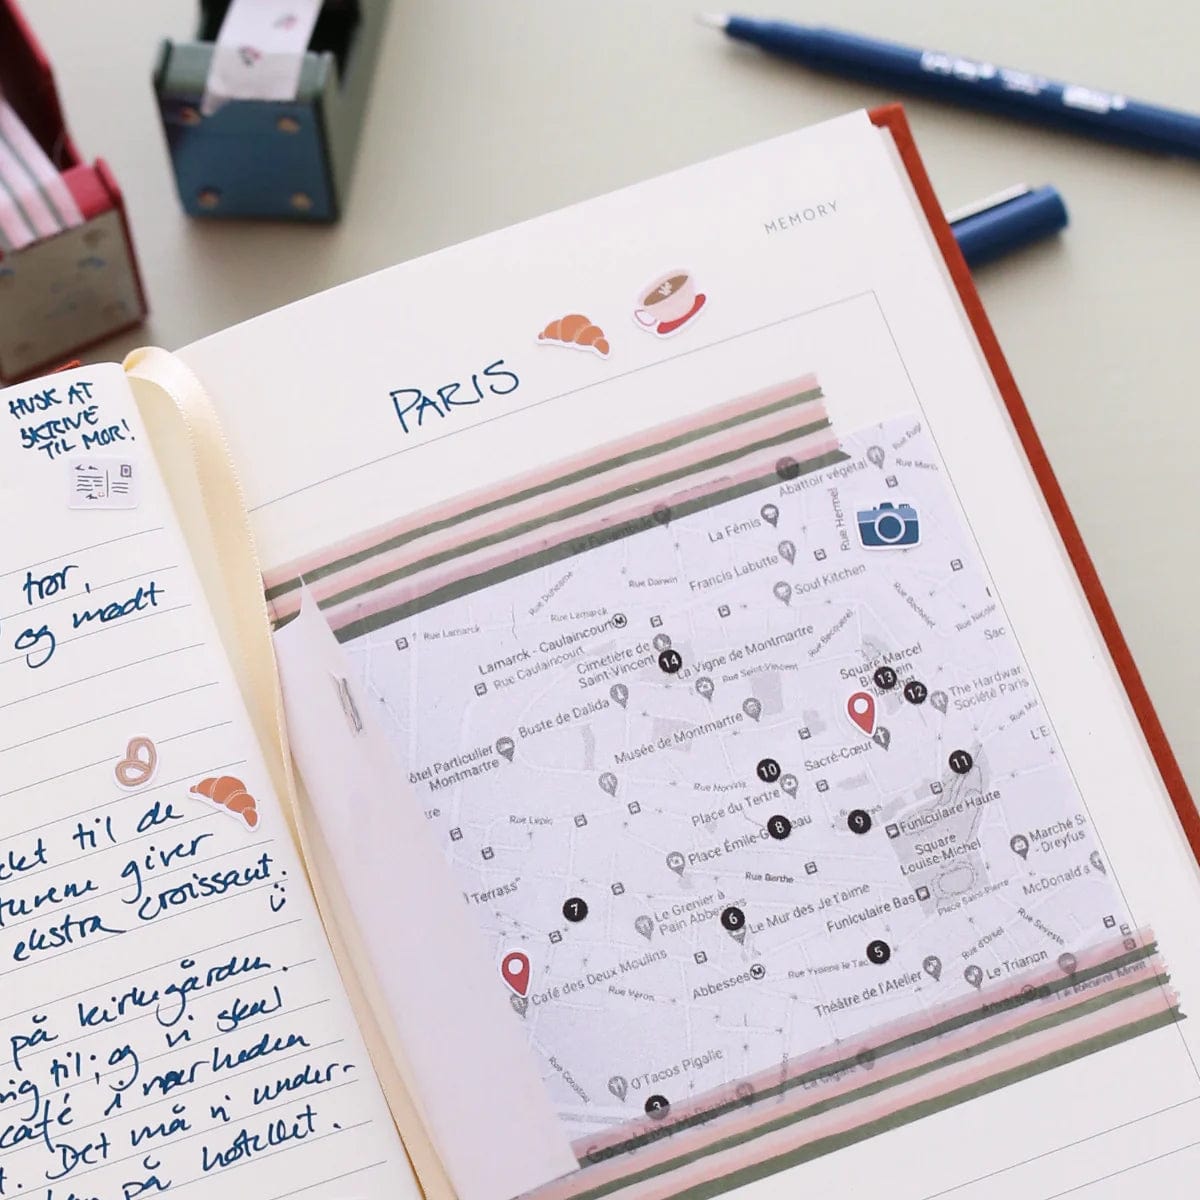 HUSK AT
SKRIVE
TIL MOR!
tror,
og mødt
til de
giver
ekstra croissant.
på kirkegården.
til; og vi skal
café i nærheden
Det må vi under-
på hotellet.
MEMORY
PARIS
Abattoir végétal
La Fémis
Rue Hermel
Francis Labutte
Rue Darwin
Soul Kitchen
Rue Duhesme
Rue Lamarck
Rue Lamarck
Lamarck - Caulaincourt
Rue Caulaincourt
Cimetière de
Saint-Vincent
14
La Vigne de Montmartre
Rue Saint-Vincent
Rue Becquerel
Rue Bachelet
Rue Nicolet
Sac
Square Marcel
13
12
The Hardwar
Société Paris
Buste de Dalida
Musée de Montmartre
Sacré-Cœur
Hôtel Particulier
Montmartre
10
11
Rue Norvins
Place du Tertre
Rue Lepic
8
9
Place Émile-G
eau
Funiculaire Haute
Square
Louise-Michel
Marché S
- Dreyfus
Rue Berthe
McDonald's
Place Saint-Pierre
Terrass"
7
Le Grenier à
Pain Abbesses
6
Le Mur des Je t'aime
Funiculaire Bas
5
Rue Seveste
Rue d'Orsel
Café des Deux Moulins
Rue Véron
Abbesses
Rue Yvonne le Tac
Théâtre de l'Atelier
Le Trianon
Rue Coustou
O'Tacos Pigalle
3
La Cigale
Google My Maps